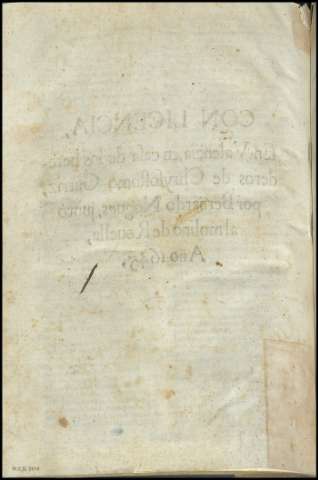 CON LICENCIA,
En Valencia, en casa de los here
deros de Chrysostomo Garriz
por Bernardo Nogues, junto
al molino de Rouella,
Año 1645.